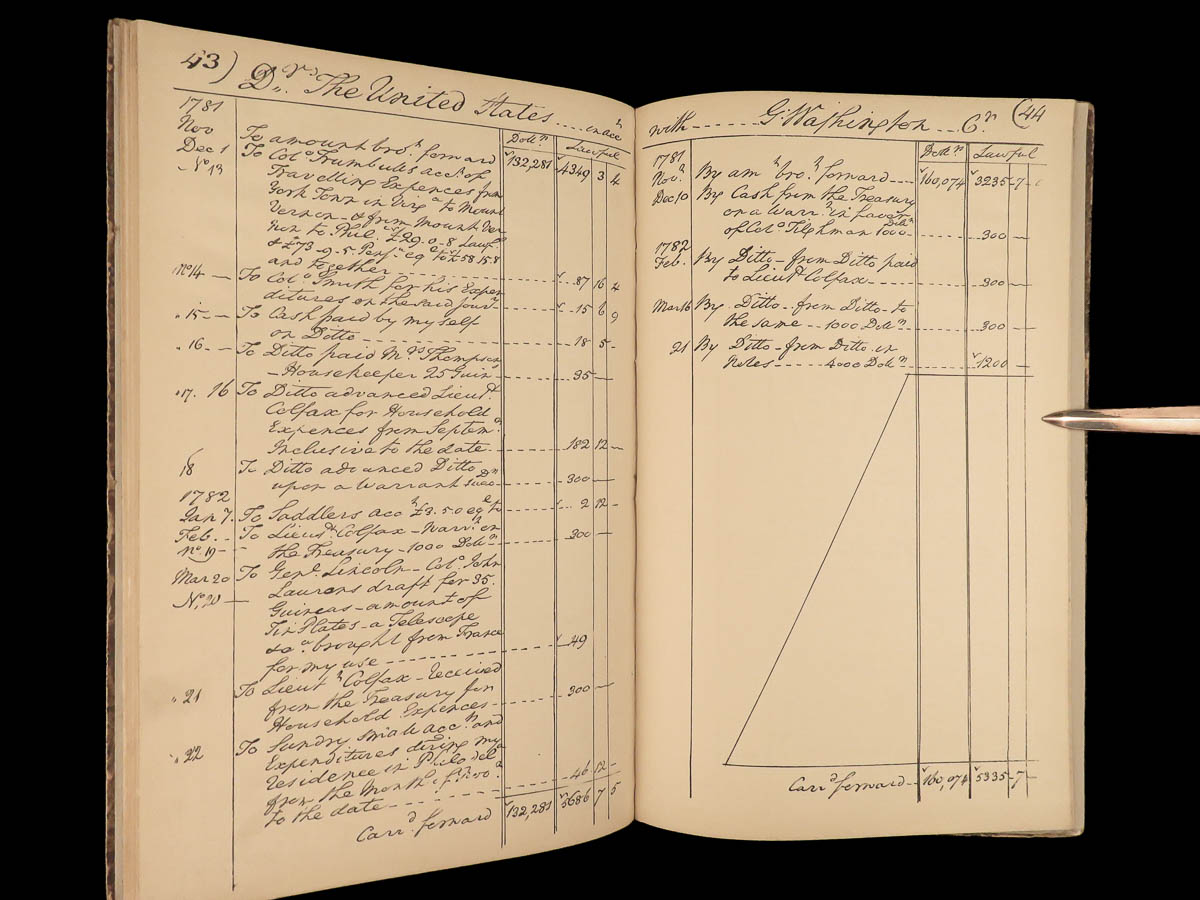 43)
Dr. The United States .... in acc
Doll.rs Lawful
1781
Nov To amount bro.t forward 132,281 4349 3 4
Dec 1 To Col.o Trumbulls acc.t of
No 13 Travelling Expences from
York Town in Virg.a to Mount
Vernon - & from Mount Ver
non to Phil.a £29.0.8 Lawf.l
& £73-9.5. Pens.a eq.l to £58 15.8
and together 87 16 4
No 14 — To Col.o Smith for his Expen
ditures on the said jour.y 15 6 9
15 — To Cash paid by myself
on Ditto 18 5 -
16 — To Ditto paid Mrs Thompson
- Housekeeper 25 Guin 35 —
17. 16 To Ditto advanced Lieu.t
Colfax for Household
Expences from Septem.r
Inclusive to the date 182 12 —
18 To Ditto advanced Ditto
upon a warrant 1000 Dn 300 —
1782
Jan 7. To Saddlers acc.t £3.5.0 eq.l to 2 12 —
Feb. To Lieu.t Colfax - Warr.t on
No 19 - the Treasury - 1000 Doll.rs 300 —
Mar 20 To Gen.l Lincoln - Col.o John
No. 20 — Laurens draft for 35.
Guineas - amount of
Tin Plates - a Telescope
&c.a brought from France
for my use 49
21 To Lieu.t Colfax - received
from the Treasury for
Household Expences 300 —
22 To Sundry small acc.ts and
Expenditures during my
residence in Philadel.a
from the Month of Nov.r
to the date 46 12 —
Carr.d forward 132,281 5686 7 5
(44
with G: Washington .. Cr.
Doll.rs Lawful
1781
Nov.r By am.t bro.t forward 160,074 3235 - 7 -
Dec 10 By Cash from the Treasury
on a Warr.t in favor
of Col.o Tilghman 1000 Doll. 300 —
1782
Feb. By Ditto - from Ditto paid
to Lieu.t Colfax 300 —
Mar 16 By Ditto .. from Ditto - to
the same .. 1000 Doll.rs 300 —
21 By Ditto - from Ditto in
Notes 4000 Doll.rs 1200 —
Carr.d forward 160,074 5335 - 7 -